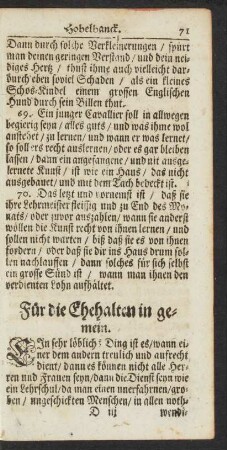 Hobelbanck. 71
Dann durch solche Verkleinerungen / spürt
man deinen geringen Verstand / und dein nei-
diges Hertz / thust ihme auch vielleicht dar-
durch eben soviel Schaden / als ein kleines
Schos-Kindel einem grossen Englischen
Hund durch sein Billen thut.
69. Ein junger Cavallier soll in allwegen
begierig seyn / alles guts / und was ihme wol
anstehet / zu lernen / und wann er was lernet /
so soll ers recht auslernen / oder es gar bleiben
lassen / dann ein angefangene / und nit ausge-
lernete Kunst / ist wie ein Haus / das nicht
ausgebauet / und mit dem Tach bedeckt ist.
70. Das letzt und vorneust ist / daß sie
ihre Lehrmeister fleissig und zu End des Mo-
nats / oder zuvor auszahlen / wann sie anderst
wöllen die Kunst recht von ihnen lernen / und
sollen nicht warten / biß daß sie es von ihnen
fordern / oder daß sie dir ins Haus drum sol-
len nachlauffen / dann solches für sich selbst
ein grosse Sünd ist / wann man ihnen den
verdienten Lohn aufhältet.
Für die Ehehalten in ge-
mein.
EIn sehr löblich Ding ist es / wann ei-
ner dem andern treulich und aufrecht
dient / dann es können nicht alle Her-
ren und Frauen seyn / dann die Dienst seyn wie
ein Lehrschul / da man einen unerfahrnen / gro-
ben / ungeschickten Menschen / in allen noth-
D iiij wendi-